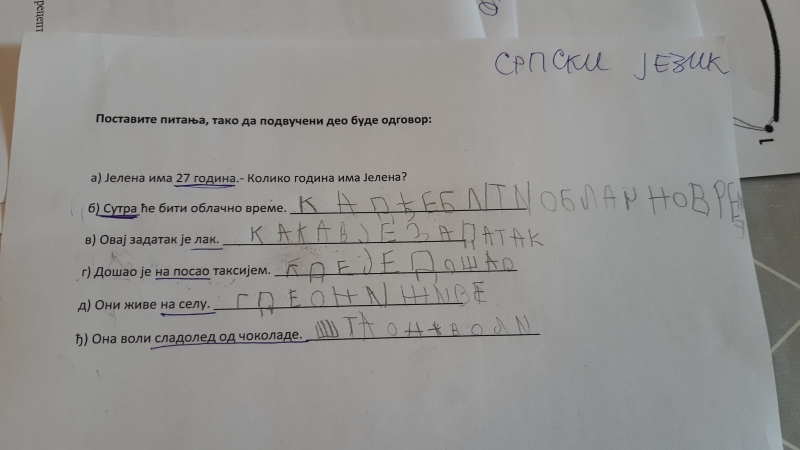 рецепт
СРПСКИ ЈЕЗИК
Поставите питања, тако да подвучени део буде одговор:
а) Јелена има 27 година.- Колико година има Јелена?
б) Сутра ће бити облачно време. КАД ЋЕ БИТИ ОБЛАЧНО ВРЕ
в) Овај задатак је лак. КАКАВ ЈЕ ЗАДАТАК
г) Дошао је на посао таксијем. КДЕ ЈЕ ДОШАО
д) Они живе на селу. ГДЕ ОНИ ЖИВЕ
ђ) Она воли сладолед од чоколаде. ШТА ОНА ВОЛИ
1